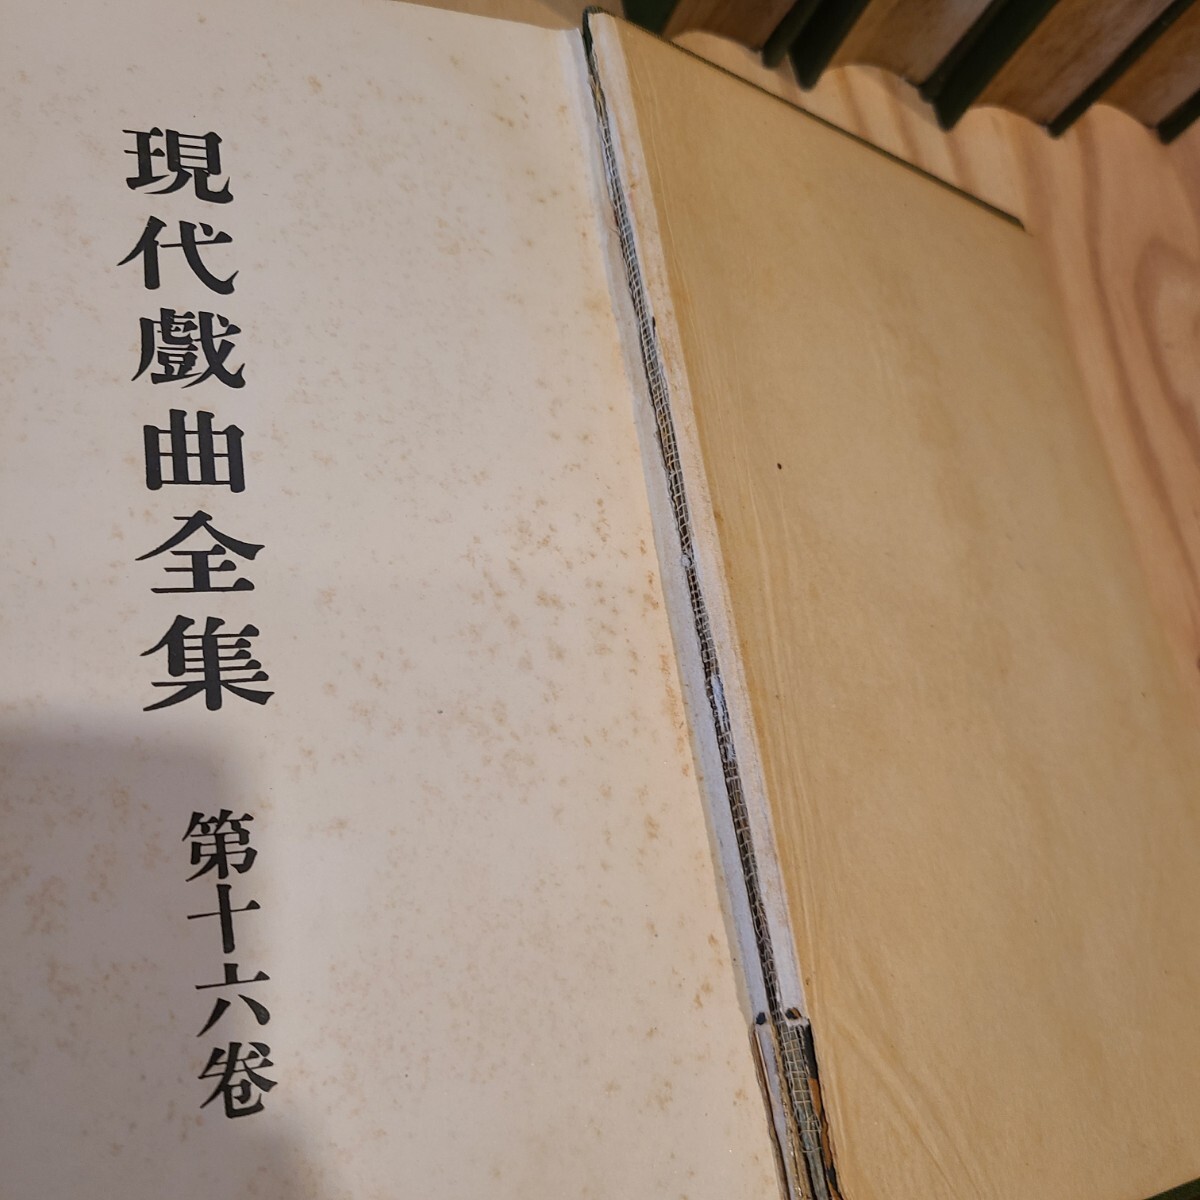 現代戲曲全集
第十六卷